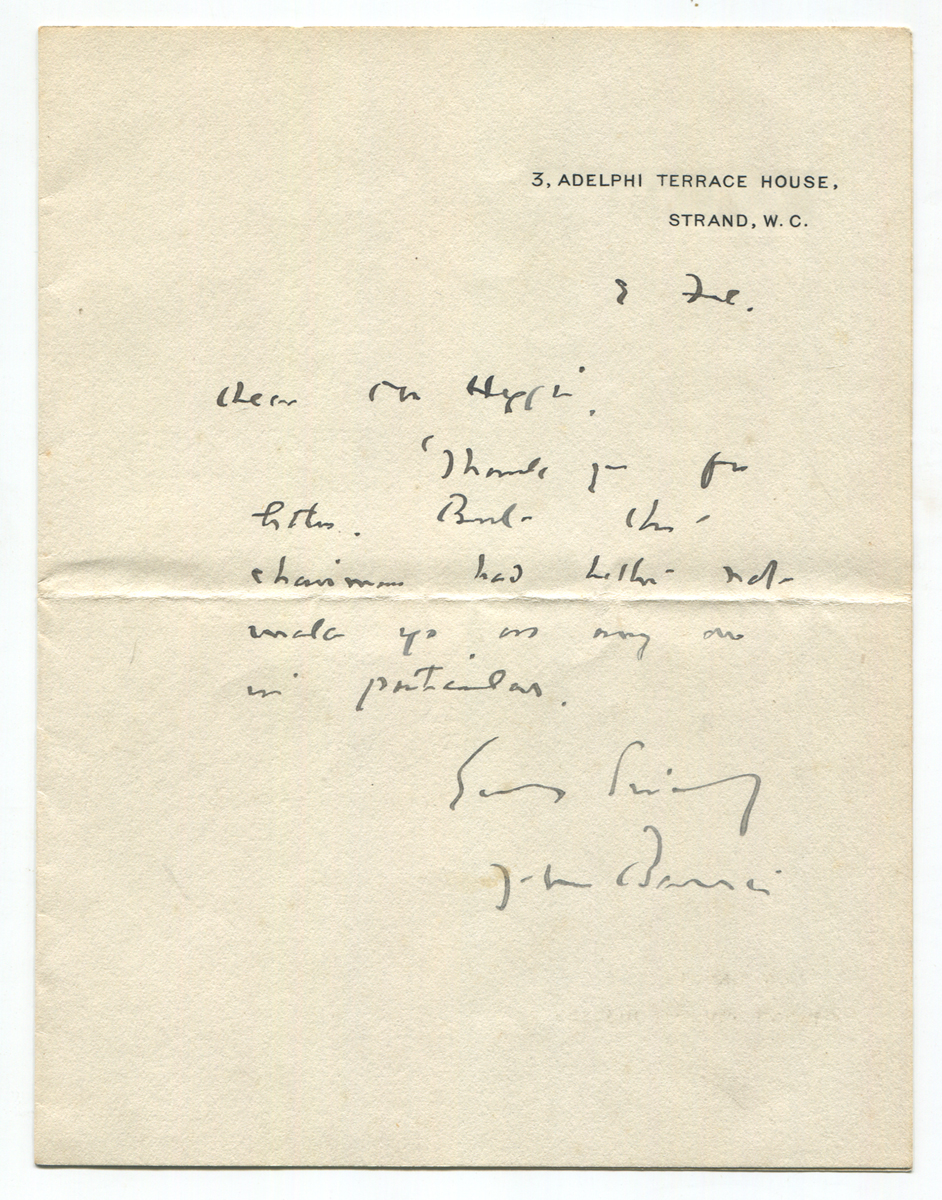 3, ADELPHI TERRACE HOUSE,
STRAND, W. C.
Dear Mr
Thank you for
letter. But the
chairman had better not
make up on any one
in particular.
Yours Sincerely
J. M. Barrie